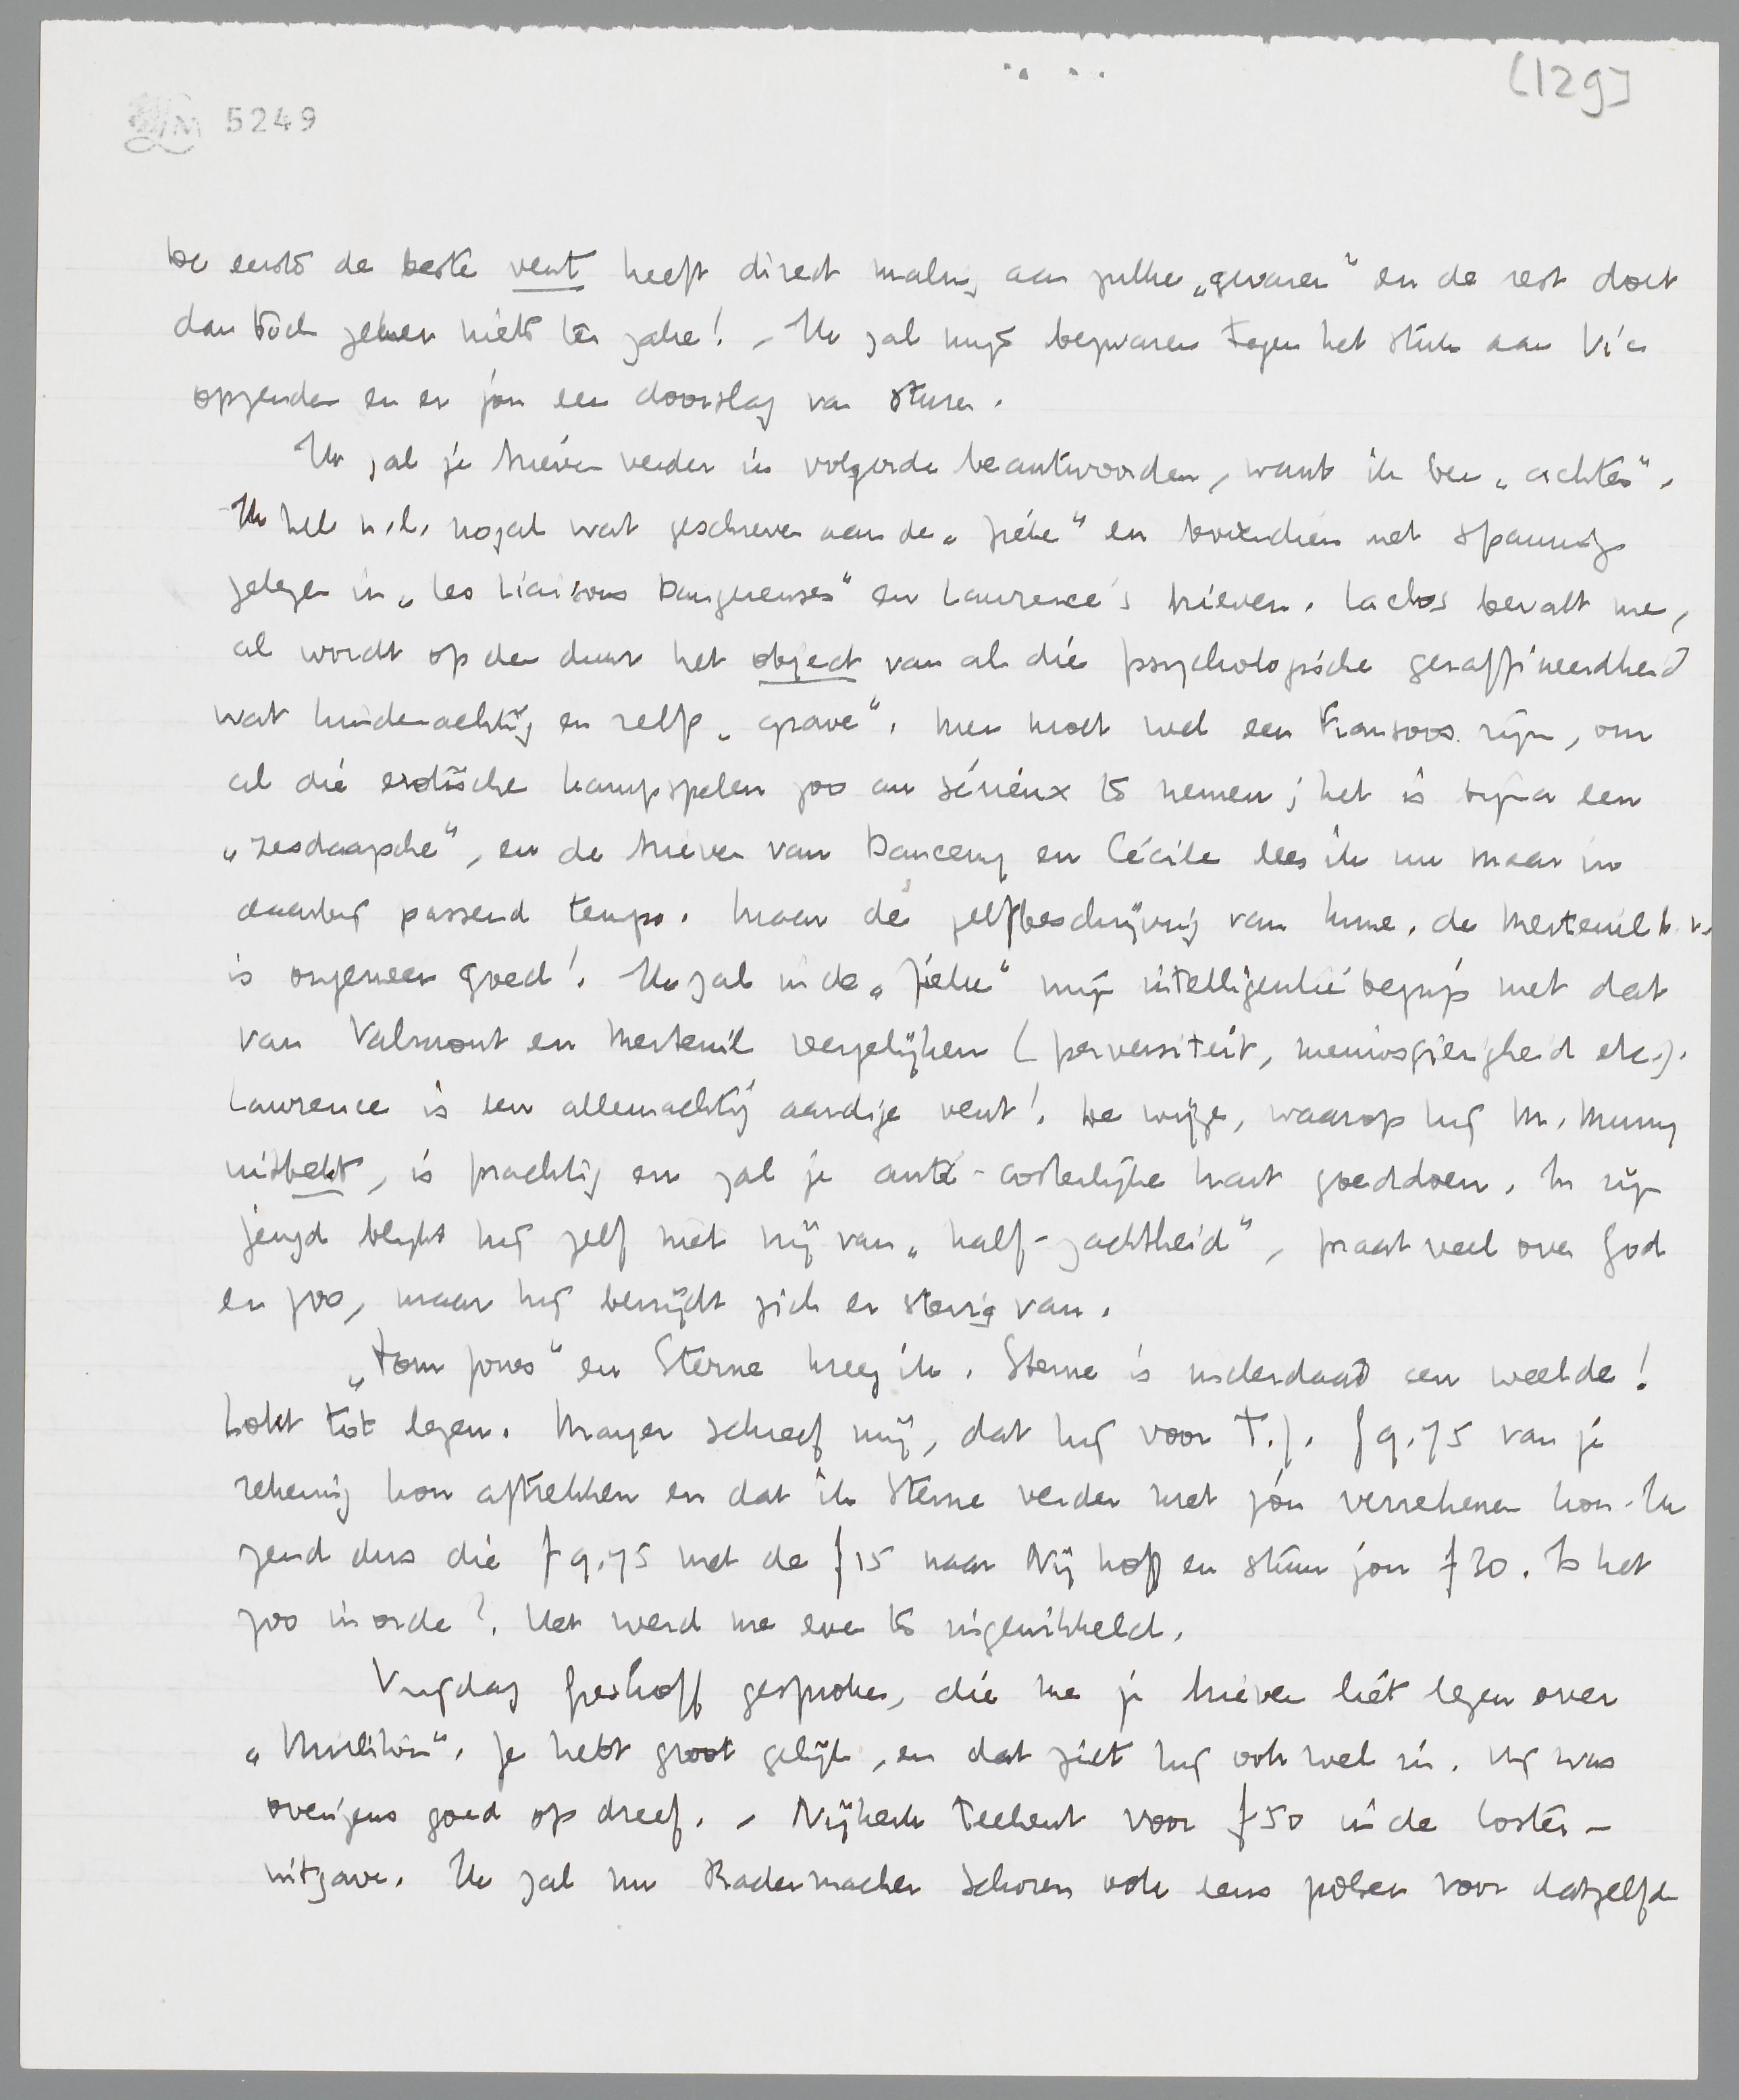 [129]
LM 5249
De eerste de beste vent heeft direct maling aan zulke „gevaren” en de rest doet
dan tòch zeker niets ter zake! – Ik zal mijn bezwaren tegen het stuk aan Vic
opzenden en er jou een doorslag van sturen.
Ik zal je brieven verder in volgorde beantwoorden, want ik ben „achter”.
Ik heb n.l. nogal wat geschreven aan de „ziele” en bovendien met spanning
gelezen in „Les Liaisons Dangereuses” en Lawrence's brieven. Laclos bevalt me,
al wordt op den duur het object van al die psychologische geraffineerdheid
wat kinderachtig en zelfs „grave”. Men moet wel een Franschoos zijn, om
al die erotische kampspelen zoo au sérieux te nemen; het is bijna een
„zesdaagsche”, en de brieven van Danceny en Cécile lees ik nu maar in
daarbij passend tempo. Maar de zelfbeschrijving van Mme. de Merteuil b.v.
is ongemeen goed! Ik zal in de „ziele” mijn intelligentiebegrip met dat
van Valmont en Merteuil vergelijken (perversiteit, nieuwsgierigheid etc.).
Lawrence is een allemachtig aardige vent! De wijze, waarop hij M. Murry
uitbekt, is prachtig en zal je anti-costerlijke hart goeddoen. In zijn
jeugd blijkt hij zelf niet vrij van „half-zachtheid”, praat veel over God
en zoo, maar hij bevrijdt zich er stevig van.
„Tom Jones” en Sterne kreeg ik. Sterne is inderdaad een weelde!
Lokt tot lezen. Mayer schreef mij, dat hij voor T.J. f 9.75 van je
rekening kon aftrekken en dat ik Sterne verder met jou verrekenen kon. Ik
zend dus die f 9.75 met de f 15 naar Nijhoff en stuur jou f 30. Is het
zoo in orde? Het werd me even te ingewikkeld.
Vrijdag Greshoff gesproken, die me je brieven liet lezen over
„Mureliton”. Je hebt groot gelijk, en dat ziet hij ook wel in. Hij was
overigens goed op dreef. – Nijkerk teekent voor f 50 in de Coster-
uitgave. Ik zal nu Radermacher Schorer ook eens polsen voor datzelfde